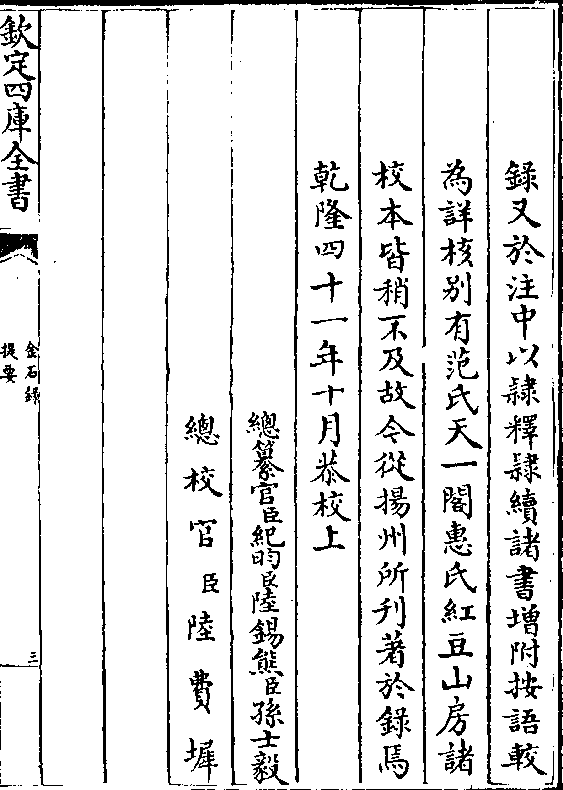 錄又於注中以隸釋隸續諸書増附按語較
為詳核别有范氏天一閣惠氏紅豆山房諸
校本皆稍不及故今從揚州所刋著於錄焉
乾隆四十一年十月恭校上
總纂官臣紀昀臣陸錫熊臣孫士毅
總校官臣陸費墀
欽定四庫全書
金石錄
提要
三